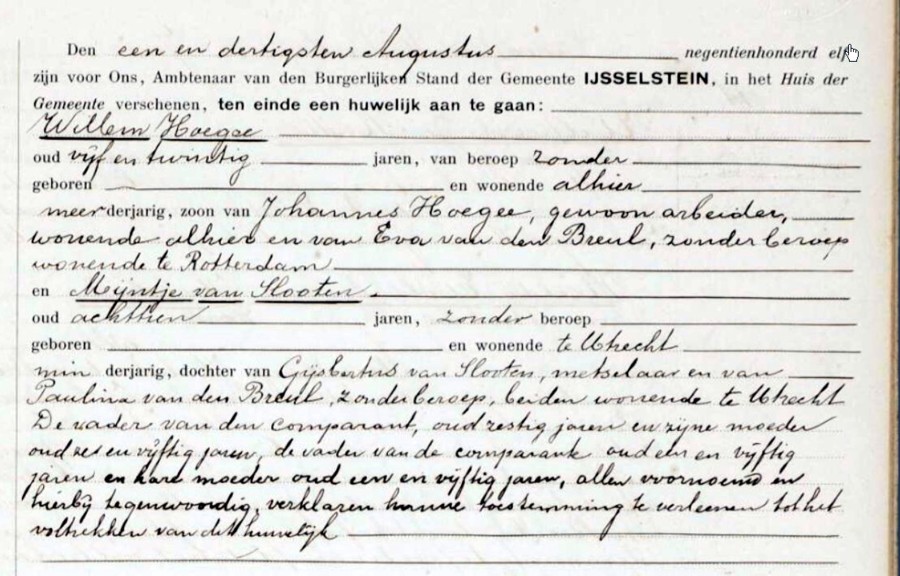 Den een en dertigsten Augustus negentienhonderd elf
zijn voor Ons, Ambtenaar van den Burgerlijken Stand der Gemeente IJSSELSTEIN, in het Huis der
Gemeente verschenen, ten einde een huwelijk aan te gaan:
Willem Hoegee
oud vijf en twintig jaren, van beroep zonder
geboren en wonende alhier
meerderjarig, zoon van Johannes Hoegee, gewoon arbeider,
wonende alhier en van Eva van den Breul, zonder beroep
wonende te Rotterdam
en Mijntje van Slooten
oud achttien jaren, zonder beroep
geboren en wonende te Utrecht
min derjarig, dochter van Gijsbertus van Slooten, metselaar en van
Paulina van den Breul, zonder beroep, beiden wonende te Utrecht
De vader van den comparant, oud zestig jaren en zijne moeder
oud zes en vijftig jaren, de vader van de comparante oud een en vijftig
jaren en hare moeder oud een en vijftig jaren, allen voornoemd en
hierbij tegenwoordig, verklaren hunne toestemming te verleenen tot het
voltrekken van dit huwelijk